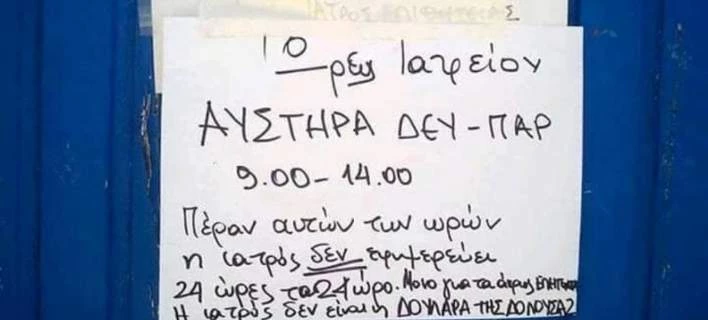 ΙΑΤΡΟΣ
Ώρες Ιατρείου
ΑΥΣΤΗΡΑ ΔΕΥ-ΠΑΡ
9.00-14.00
Πέραν αυτών των ωρών
η ιατρός δεν εφημερεύει
24 ώρες το 24ωρο. Μόνο για τα
Η ιατρός δεν είναι η ΔΟΥΛΑΡΑ ΤΗΣ ΔΟΝΟΥΣΑΣ